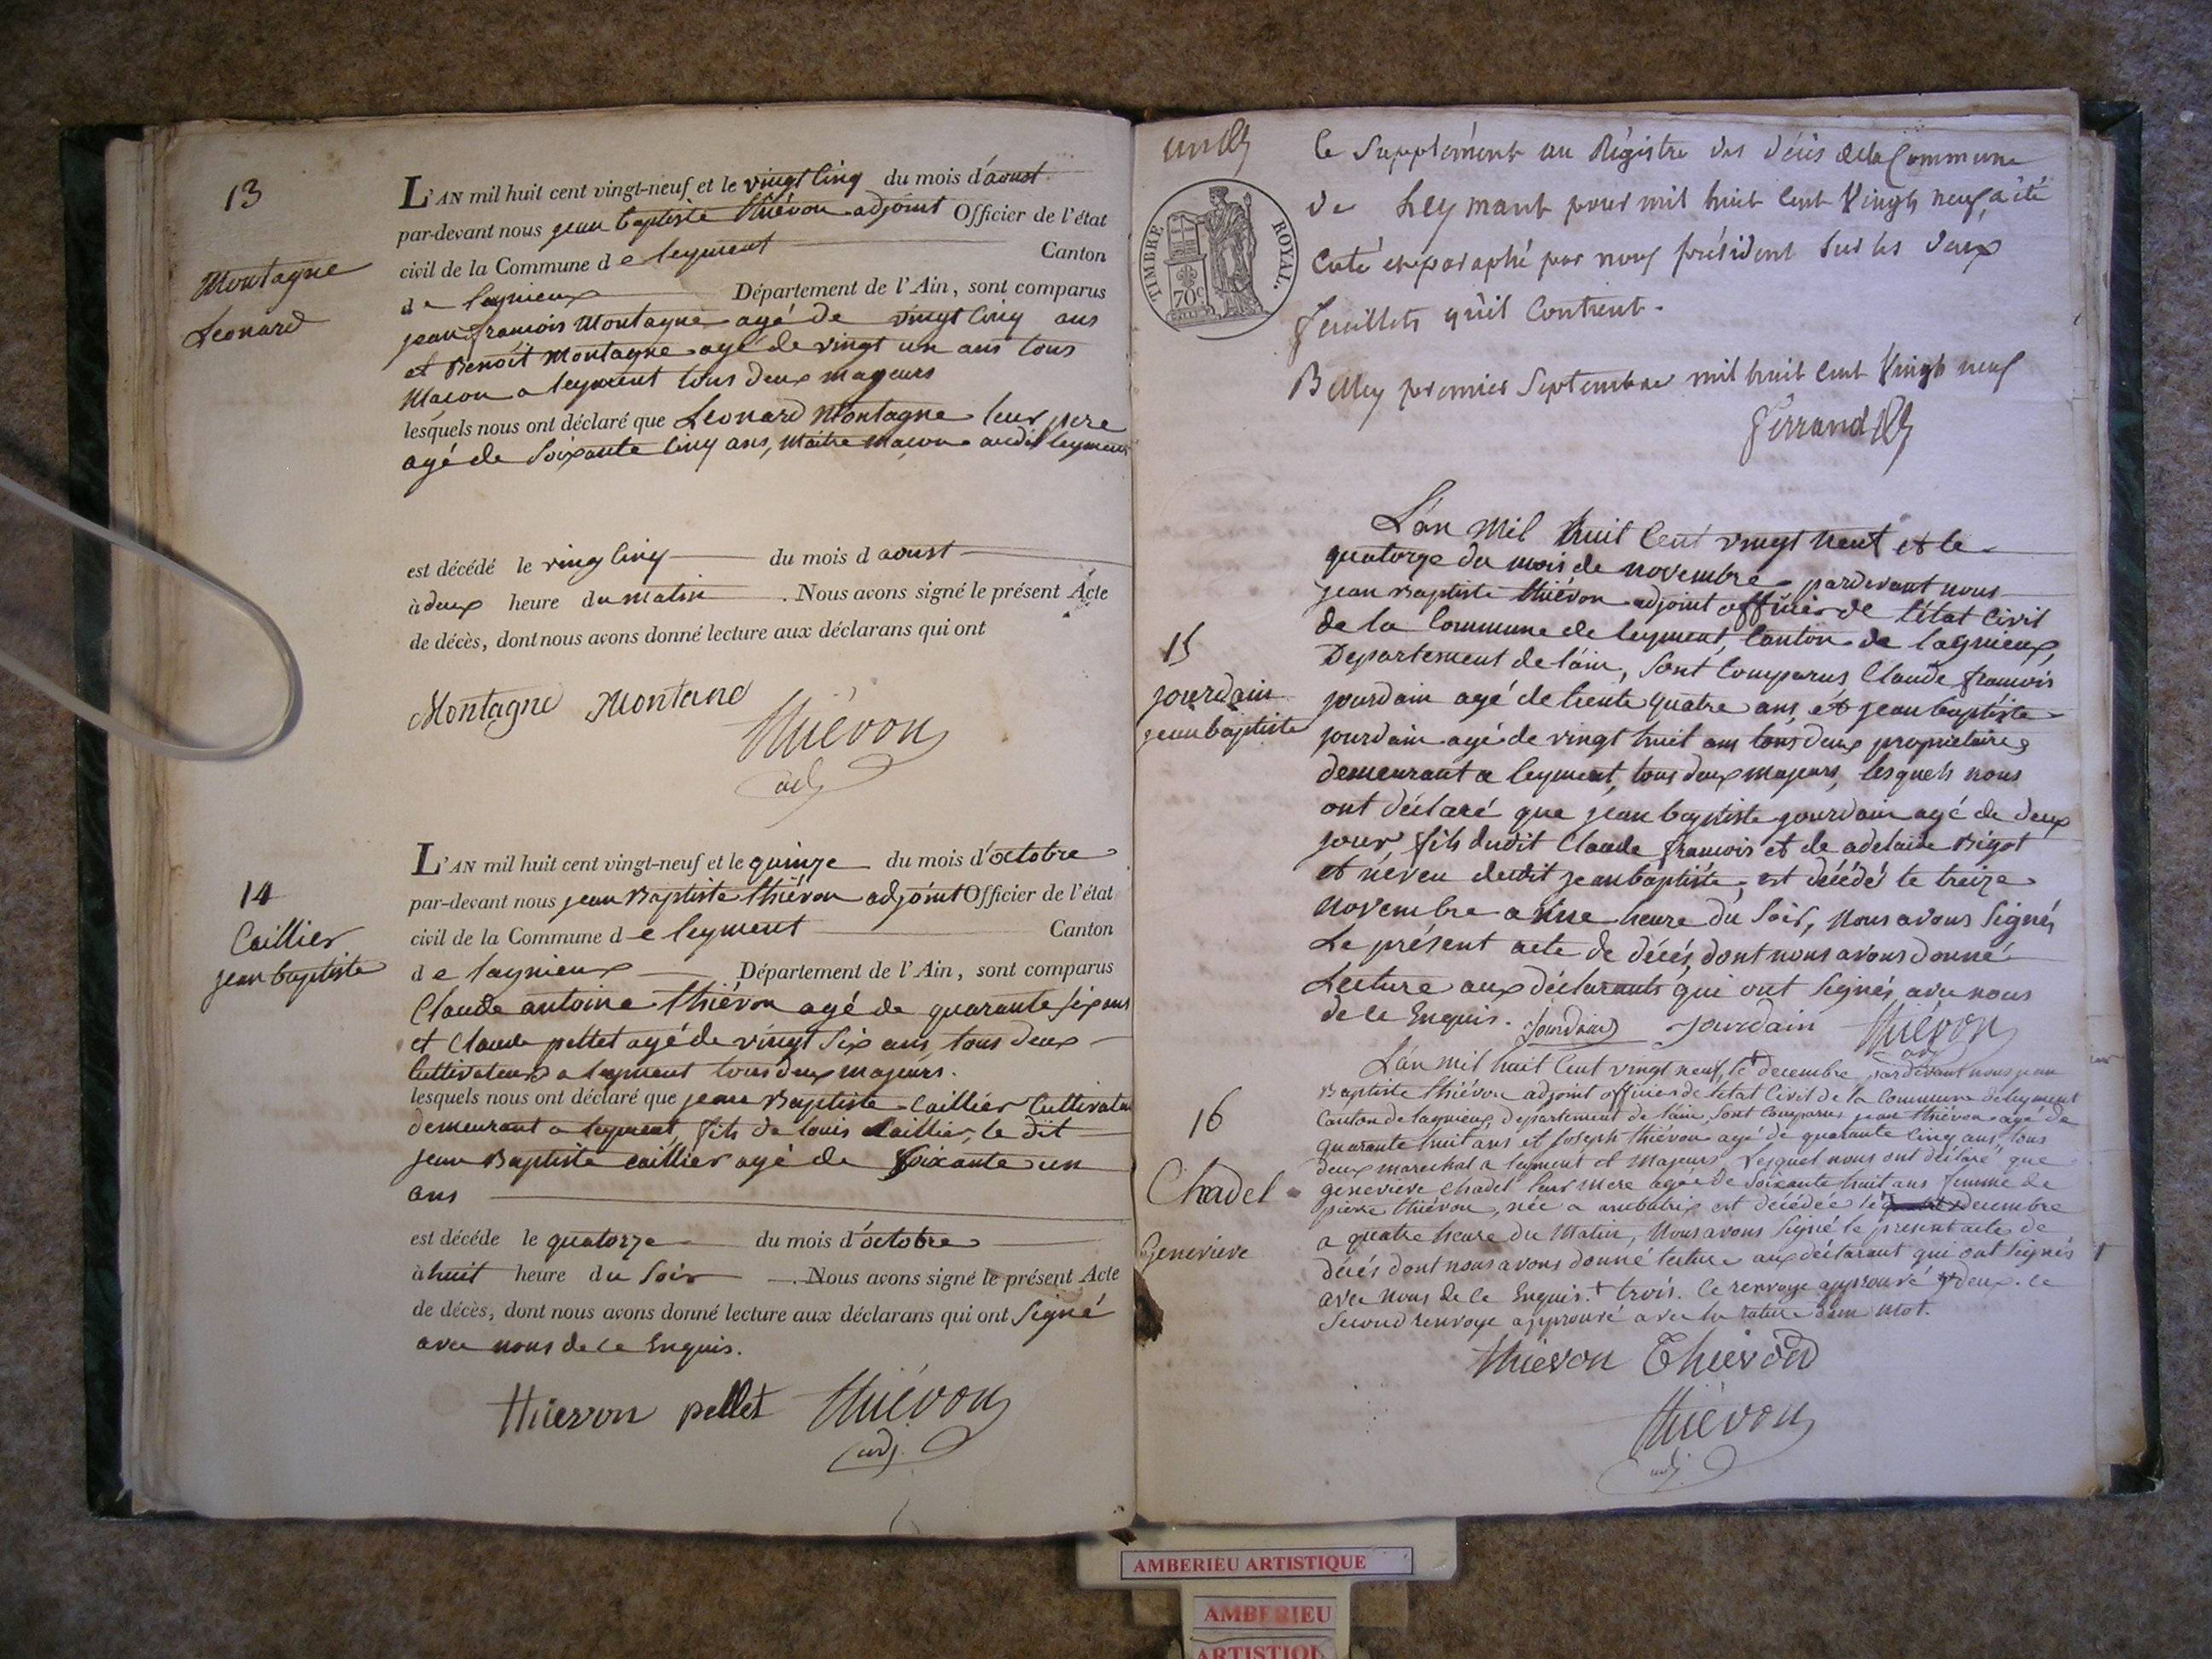 13
Montagne
Leonard
L'AN mil huit cent vingt-neuf et le vingt cinq du mois d'aoust
par-devant nous jean baptiste thiévon adjoint Officier de l'état
civil de la Commune de leyment Canton
de lagnieux Département de l'Ain, sont comparus
jean francois Montagne agé de vingt cinq ans
et Benoit Montagne agé de vingt un ans tous
Macon a leyment tous deux majeurs
lesquels nous ont déclaré que Leonard Montagne leur pere
agé de Soixante cinq ans, Maitre Macon audit leyment
est décédé le ving cinq du mois d aoust
à deux heure du matin. Nous avons signé le présent Acte
de décès, dont nous avons donné lecture aux déclarans qui ont
Montagne Montand
thiévon
adj
14
Caillier
jean baptiste
L'AN mil huit cent vingt-neuf et le quinze du mois d'octobre
par-devant nous jean Baptiste thiévon adjoint Officier de l'état
civil de la Commune de leyment Canton
de lagnieux Département de l'Ain, sont comparus
Claude antoine thiévon agé de quarante six ans
et Claude pellet agé de vingt Six ans, tous deux
Cultivateurs a leyment tous deux majeurs.
lesquels nous ont déclaré que jean Baptiste Caillier Cultivateu
demeurant a leyment, fils de louis Caillier, le dit
jean Baptiste caillier agé de Soixante un
ans
est décéde le quatorze du mois d'octobre
à huit heure du Soir. Nous avons signé le présent Acte
de décès, dont nous avons donné lecture aux déclarans qui ont Signé
avec nous de ce Enquis.
thiervon pellet thiévon
adj.
TIMBRE ROYAL.
70c
le Supplément au Régistre des décès de la Commune
de Leymant pour mil huit cent Vingt neuf, a été
Coté et paraphé par nous président Sur les deux
feuillets qu'il Contient.
Belley premier Septembre mil huit cent Vingt neuf
Ferrand
L'an Mil huit Cent vingt neuf et le
quatorze du mois de novembre pardevant nous
jean Baptiste thiévon adjoint officier de l'état Civil
de la Commune de leyment, Canton de lagnieux,
Departement de l'ain, Sont Comparus Claude francois
15
jourdain
jean baptiste
jourdain agé de trente quatre ans, et jean baptiste
jourdain agé de vingt huit ans tous deux proprietaires
demeurant a leyment, tous deux majeurs, lesquels nous
ont déclaré que jean baptiste jourdain agé de deux
jour, fils dudit Claude francois et de adelaide Bigot
et neveu dudit jean baptiste, est décédé le treize
Novembre a une heure du Soir, Nous avons Signés
Le présent acte de décés, dont nous avons donné
Lecture aux déclarants qui ont Signés avec nous
de ce Enquis. Jourdain Jourdain thiévon
adj
16
Chadel
Genevieve
L'an mil huit Cent vingt neuf, le + decembre, pardevant nous jean
Baptiste thiévon adjoint officier de l'état Civil de la Commune de leyment
Canton de lagnieux, departement de l'ain, Sont Comparus jean thiévon agé de
quarante huit ans et Joseph thiévon agé de quarante cinq ans, tous
deux marechal a leyment et Majeurs Lesquel nous ont déclaré que
genevieve Chadel leur Mere agée de Soixante huit ans femme de
pierre thiévon, née a ambutrix est décédée le decembre
a quatre heure du Matin, Nous avons Signé le present acte de
décés dont nous avons donné lecture aux déclarant qui ont Signés
avec nous de ce Enquis. + trois. ce renvoye approuvé deux. ce
Second renvoye approuvé avec la rature d'un Mot.
thiévon Thievon
thiévon
adj.
AMBERIEU ARTISTIQUE
AMBERIEU